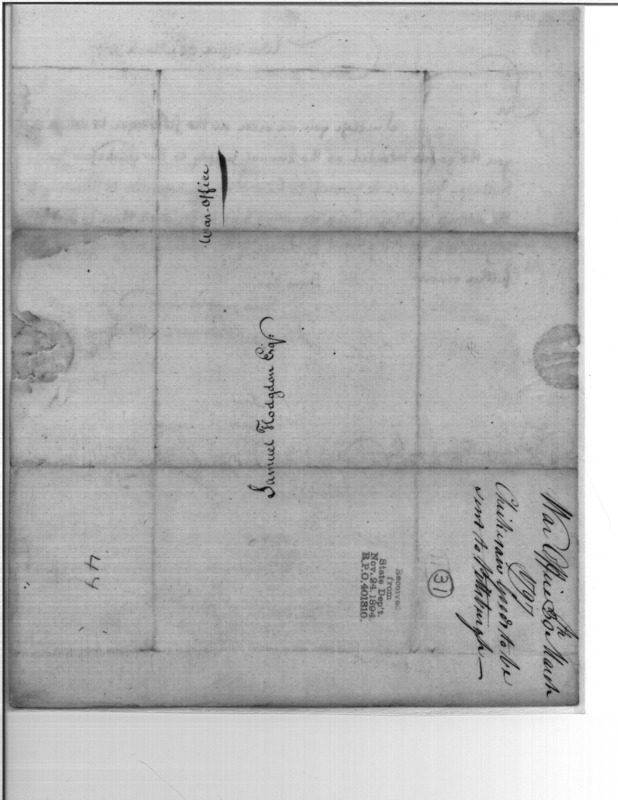 War-Office
Samuel Hodgdon Esqr
War Office 30th March
1797
Chickasaw Goods to be
sent to Pittsburgh—
31
Received
from
State Dep't.
Nov. 24, 1894
R.P.O. 401810.
44